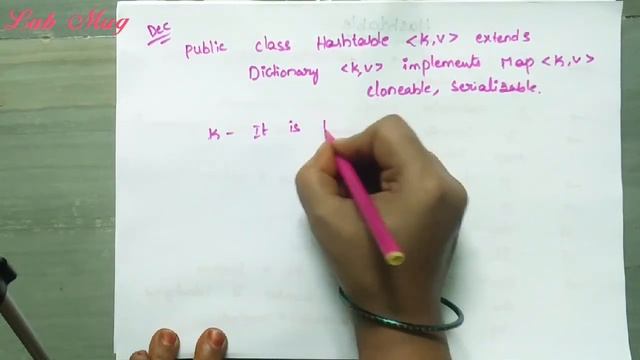 Lab Mug
Dec
public class Hashtable <K,V> extends
Dictionary <K,V> implements Map <K,V>
cloneable, serializable.
K - It is